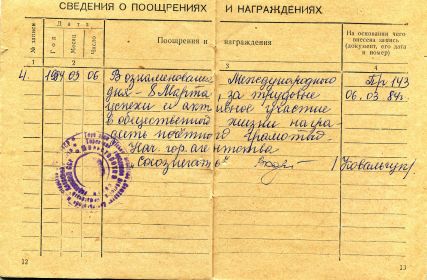 СВЕДЕНИЯ О ПООЩРЕНИЯХ И НАГРАЖДЕНИЯХ
№ записи
Дата
Год
Месяц
Число
Поощрения и награждения
На основании чего внесена запись (документ, его дата и номер)
1 2 3 4
4. 1984 03 06 В ознаменование Международного Пр 143
дня - 8 Марта, за трудовые 06.03.84г.
успехи и активное участие
в общественной жизни награ
дить почётной грамотой.
Нач. гор. агентства
"Союзпечать" /Ковальчук/
12
13